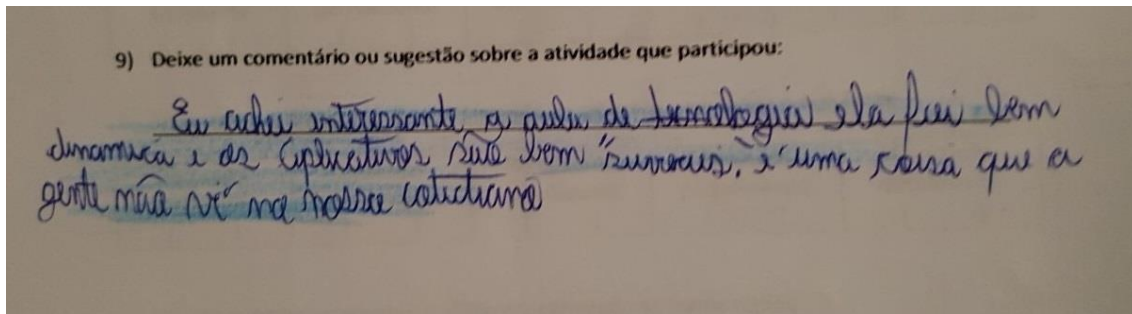 9) Deixe um comentário ou sugestão sobre a atividade que participou:
Eu achei interessante a aula de tecnologia ela foi bem
dinamica e os aplicativos são bem "surreais", é uma coisa que a
gente não vê no nosso cotidiano